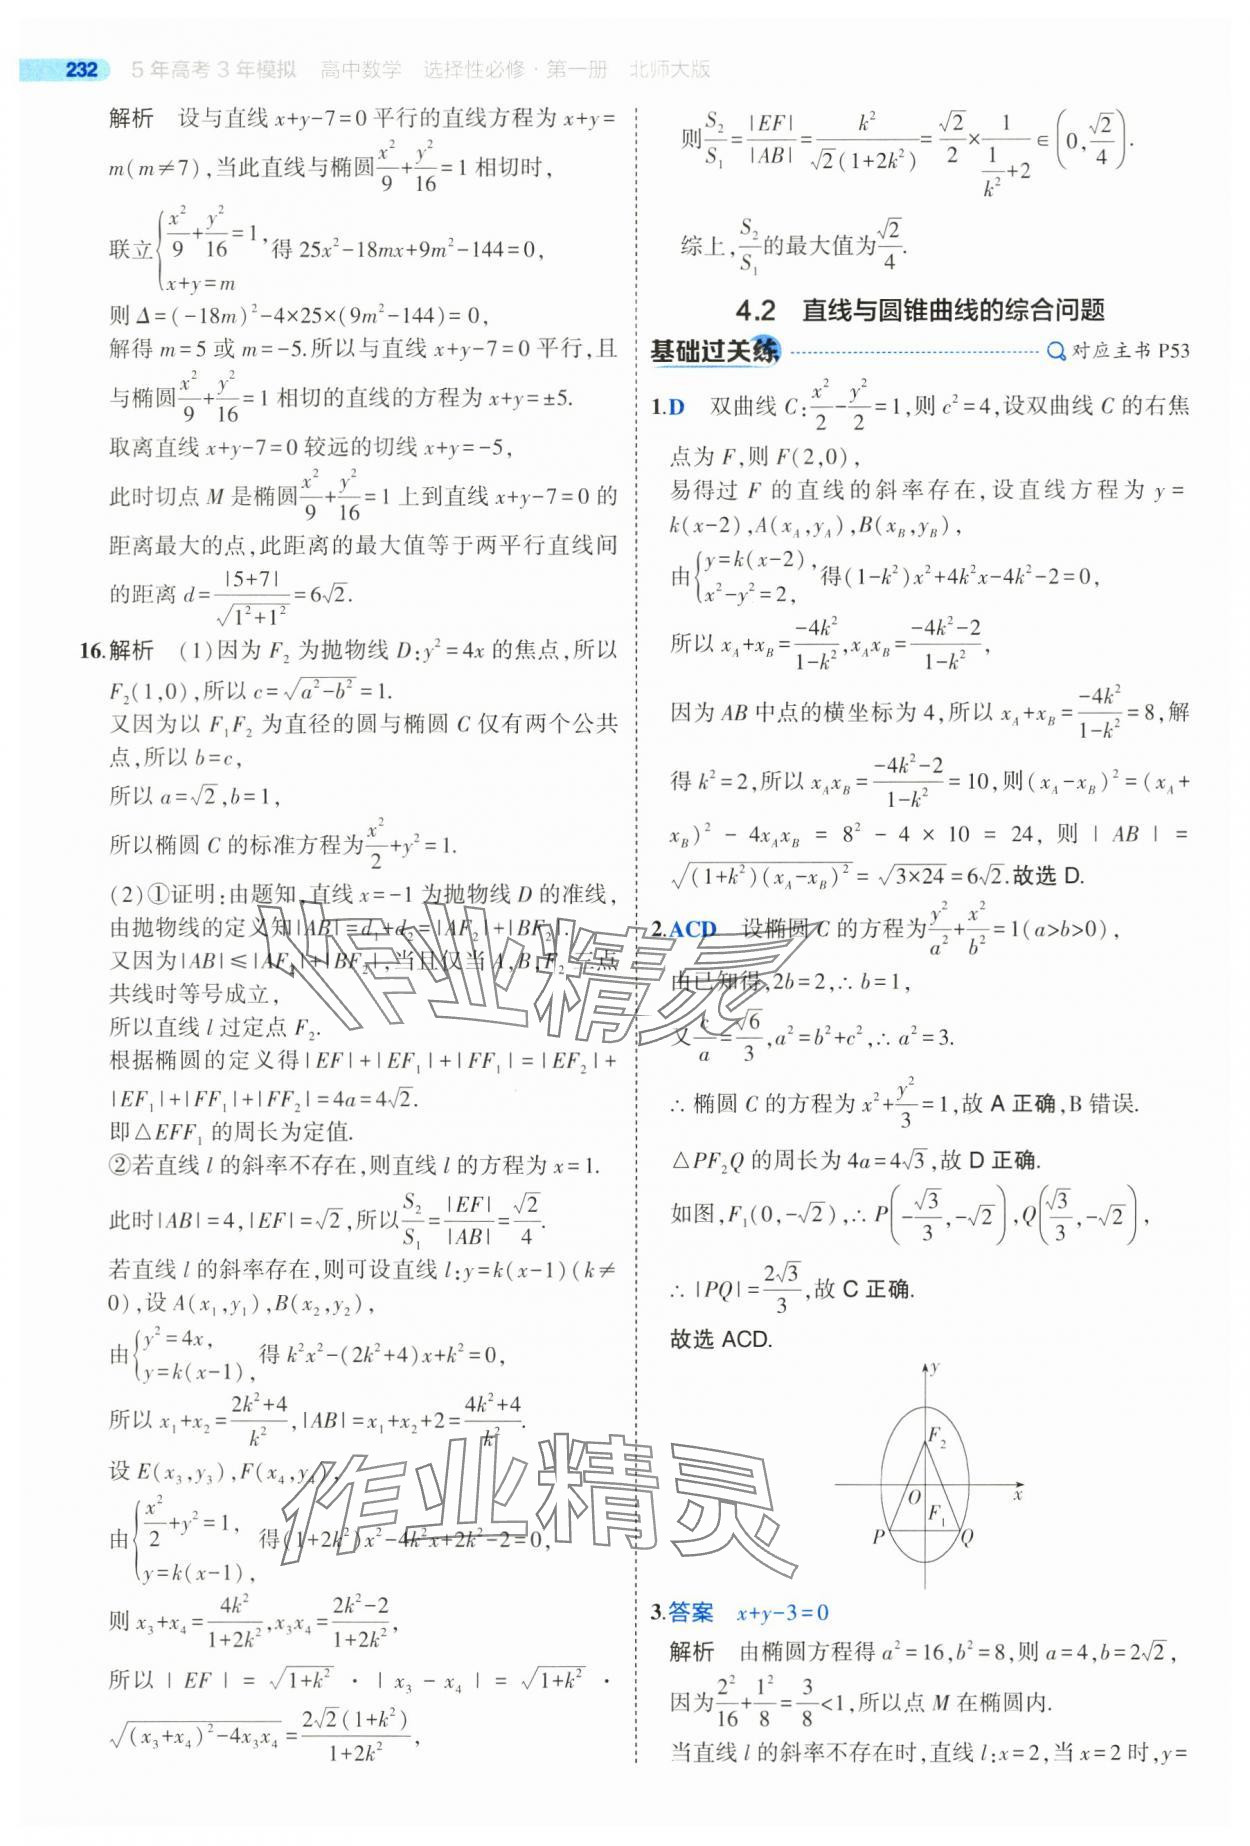 232 5年高考3年模拟 高中数学 选择性必修·第一册 北师大版
解析 设与直线 x+y-7=0 平行的直线方程为 x+y=
m(m≠7),当此直线与椭圆x²/9+y²/16=1 相切时,
联立{x²/9+y²/16=1, x+y=m 得 25x²-18mx+9m²-144=0,
则 Δ=(-18m)²-4×25×(9m²-144)=0,
解得 m=5 或 m=-5.所以与直线 x+y-7=0 平行,且
与椭圆x²/9+y²/16=1 相切的直线的方程为 x+y=±5.
取离直线 x+y-7=0 较远的切线 x+y=-5,
此时切点 M 是椭圆x²/9+y²/16=1 上到直线 x+y-7=0 的
距离最大的点,此距离的最大值等于两平行直线间
的距离 d=|5+7|/√(1²+1²)=6√2.
16.解析 (1)因为 F₂ 为抛物线 D:y²=4x 的焦点,所以
F₂(1,0),所以 c=√(a²-b²)=1.
又因为以 F₁F₂ 为直径的圆与椭圆 C 仅有两个公共
点,所以 b=c,
所以 a=√2,b=1,
所以椭圆 C 的标准方程为x²/2+y²=1.
(2)①证明:由题知,直线 x=-1 为抛物线 D 的准线,
由抛物线的定义知|AB|=d₁+d₂=|AF₂|+|BF₂|.
又因为|AB|≤|AF₂|+|BF₂|,当且仅当 A,B,F₂ 三点
共线时等号成立,
所以直线 l 过定点 F₂.
根据椭圆的定义得|EF|+|EF₁|+|FF₁|=|EF₂|+
|EF₁|+|FF₁|+|FF₂|=4a=4√2.
即△EFF₁ 的周长为定值.
②若直线 l 的斜率不存在,则直线 l 的方程为 x=1.
此时|AB|=4,|EF|=√2,所以S₂/S₁=|EF|/|AB|=√2/4.
若直线 l 的斜率存在,则可设直线 l:y=k(x-1)(k≠
0),设 A(x₁,y₁),B(x₂,y₂),
由{y²=4x, y=k(x-1), 得 k²x²-(2k²+4)x+k²=0,
所以 x₁+x₂=(2k²+4)/k²,|AB|=x₁+x₂+2=(4k²+4)/k².
设 E(x₃,y₃),F(x₄,y₄),
由{x²/2+y²=1, y=k(x-1), 得(1+2k²)x²-4k²x+2k²-2=0,
则 x₃+x₄=4k²/(1+2k²),x₃x₄=(2k²-2)/(1+2k²),
所以|EF|=√(1+k²)·|x₃-x₄|=√(1+k²)·
√((x₃+x₄)²-4x₃x₄)=2√2(1+k²)/(1+2k²),
则S₂/S₁=|EF|/|AB|=k²/(√2(1+2k²))=√2/2×1/(1/k²+2)∈(0,√2/4).
综上,S₂/S₁的最大值为√2/4.
4.2 直线与圆锥曲线的综合问题
基础过关练 对应主书 P53
1.D 双曲线 C:x²/2-y²/2=1,则 c²=4,设双曲线 C 的右焦
点为 F,则 F(2,0),
易得过 F 的直线的斜率存在,设直线方程为 y=
k(x-2),A(x_A,y_A),B(x_B,y_B),
由{y=k(x-2), x²-y²=2, 得(1-k²)x²+4k²x-4k²-2=0,
所以 x_A+x_B=-4k²/(1-k²),x_Ax_B=(-4k²-2)/(1-k²),
因为 AB 中点的横坐标为 4,所以 x_A+x_B=-4k²/(1-k²)=8,解
得 k²=2,所以 x_Ax_B=(-4k²-2)/(1-k²)=10,则(x_A-x_B)²=(x_A+
x_B)²-4x_Ax_B=8²-4×10=24,则|AB|=
√((1+k²)(x_A-x_B)²)=√(3×24)=6√2.故选 D.
2.ACD 设椭圆 C 的方程为y²/a²+x²/b²=1(a>b>0),
由已知得,2b=2,∴b=1,
又c/a=√6/3,a²=b²+c²,∴a²=3.
∴椭圆 C 的方程为 x²+y²/3=1,故 A 正确,B 错误.
△PF₂Q 的周长为 4a=4√3,故 D 正确.
如图,F₁(0,-√2),∴P(-√3/3,-√2),Q(√3/3,-√2),
∴|PQ|=2√3/3,故 C 正确.
故选 ACD.
y
F₂
O x
F₁
P Q
3.答案 x+y-3=0
解析 由椭圆方程得 a²=16,b²=8,则 a=4,b=2√2,
因为2²/16+1²/8=3/8<1,所以点 M 在椭圆内.
当直线 l 的斜率不存在时,直线 l:x=2,当 x=2 时,y=
作业精灵
作业精灵